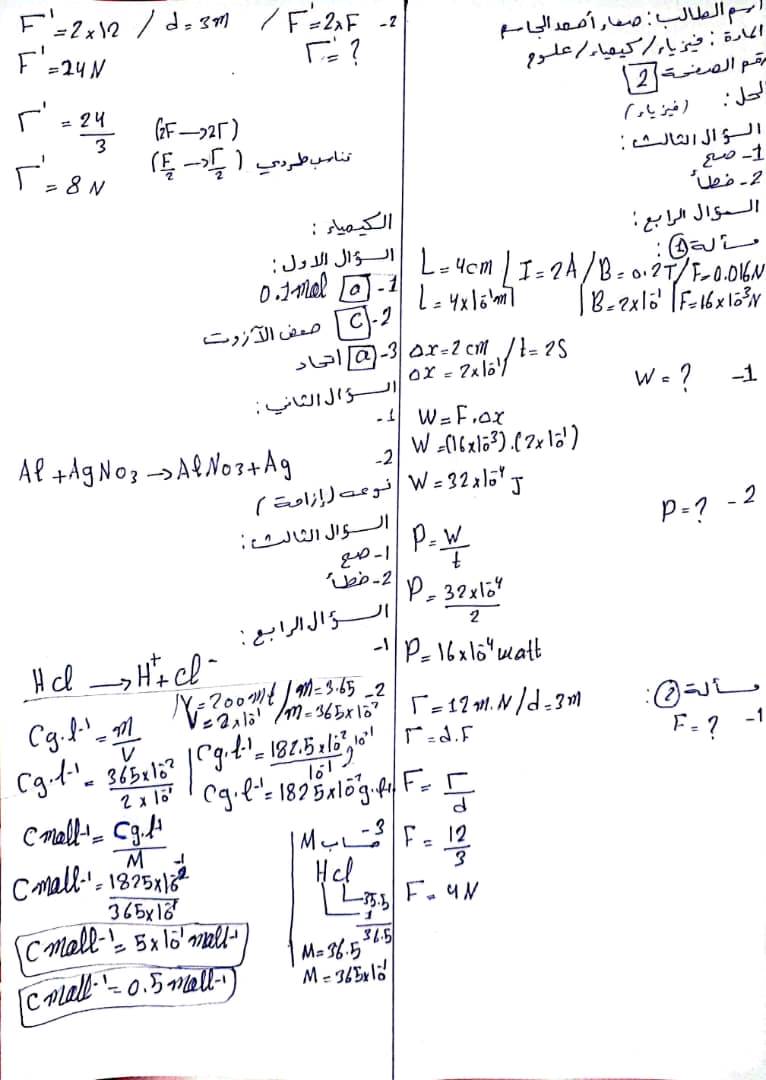 اسم الطالب: صفاء أحمد الجاسم
المادة: فيزياء/كيمياء/علوم
رقم الصفحة 2
الحل: (فيزياء)
السؤال الثالث:
1- صح
2- خطأ
السؤال الرابع:
مسألة ①:
L = 4cm / I = 2A / B = 0.2T / F = 0.016N
L = 4x10⁻¹m / B = 2x10⁻¹ / F = 16x10⁻³N
Δx = 2cm / t = 2S
Δx = 2x10⁻¹
1- W = ?
W = F.Δx
W = (16x10⁻³).(2x10⁻¹)
W = 32x10⁻⁴ J
2- P = ?
P = W/t
P = 32x10⁻⁴/2
P = 16x10⁻⁴ watt
مسألة ②:
Γ = 12 m.N / d = 3m
1- F = ?
Γ = d.F
F = Γ/d
F = 12/3
F = 4N
2- F' = 2xF / d = 3m / F' = 2x12
Γ' = ?
F' = 24N
Γ' = 24/3
(2F → 2Γ)
تناسب طردي (F/2 → Γ/2)
Γ' = 8N
الكيمياء:
السؤال الاول:
1- a 0.1mol
2- C ضعف الآزوت
3- a اتحاد
السؤال الثاني:
1-
2- Al + AgNO3 → AlNO3 + Ag
نوعه (إزاحة)
السؤال الثالث:
1- صح
2- خطأ
السؤال الرابع:
1-
Hcl → H⁺ + cl⁻
2- V = 200ml / m = 3.65
V = 2x10⁻¹ / m = 365x10⁻²
Cg.l⁻¹ = m/V
Cg.l⁻¹ = 365x10⁻²/2x10⁻¹
Cg.l⁻¹ = 182.5x10⁻²/10⁻¹
Cg.l⁻¹ = 1825x10⁻² g.l⁻¹
3- حساب M
Hcl
35.5
1
36.5
M = 36.5
M = 365x10⁻¹
Cmoll⁻¹ = Cg.l⁻¹/M
Cmoll⁻¹ = 1825x10⁻²/365x10⁻¹
Cmoll⁻¹ = 5x10⁻¹ moll⁻¹
Cmoll⁻¹ = 0.5 moll⁻¹